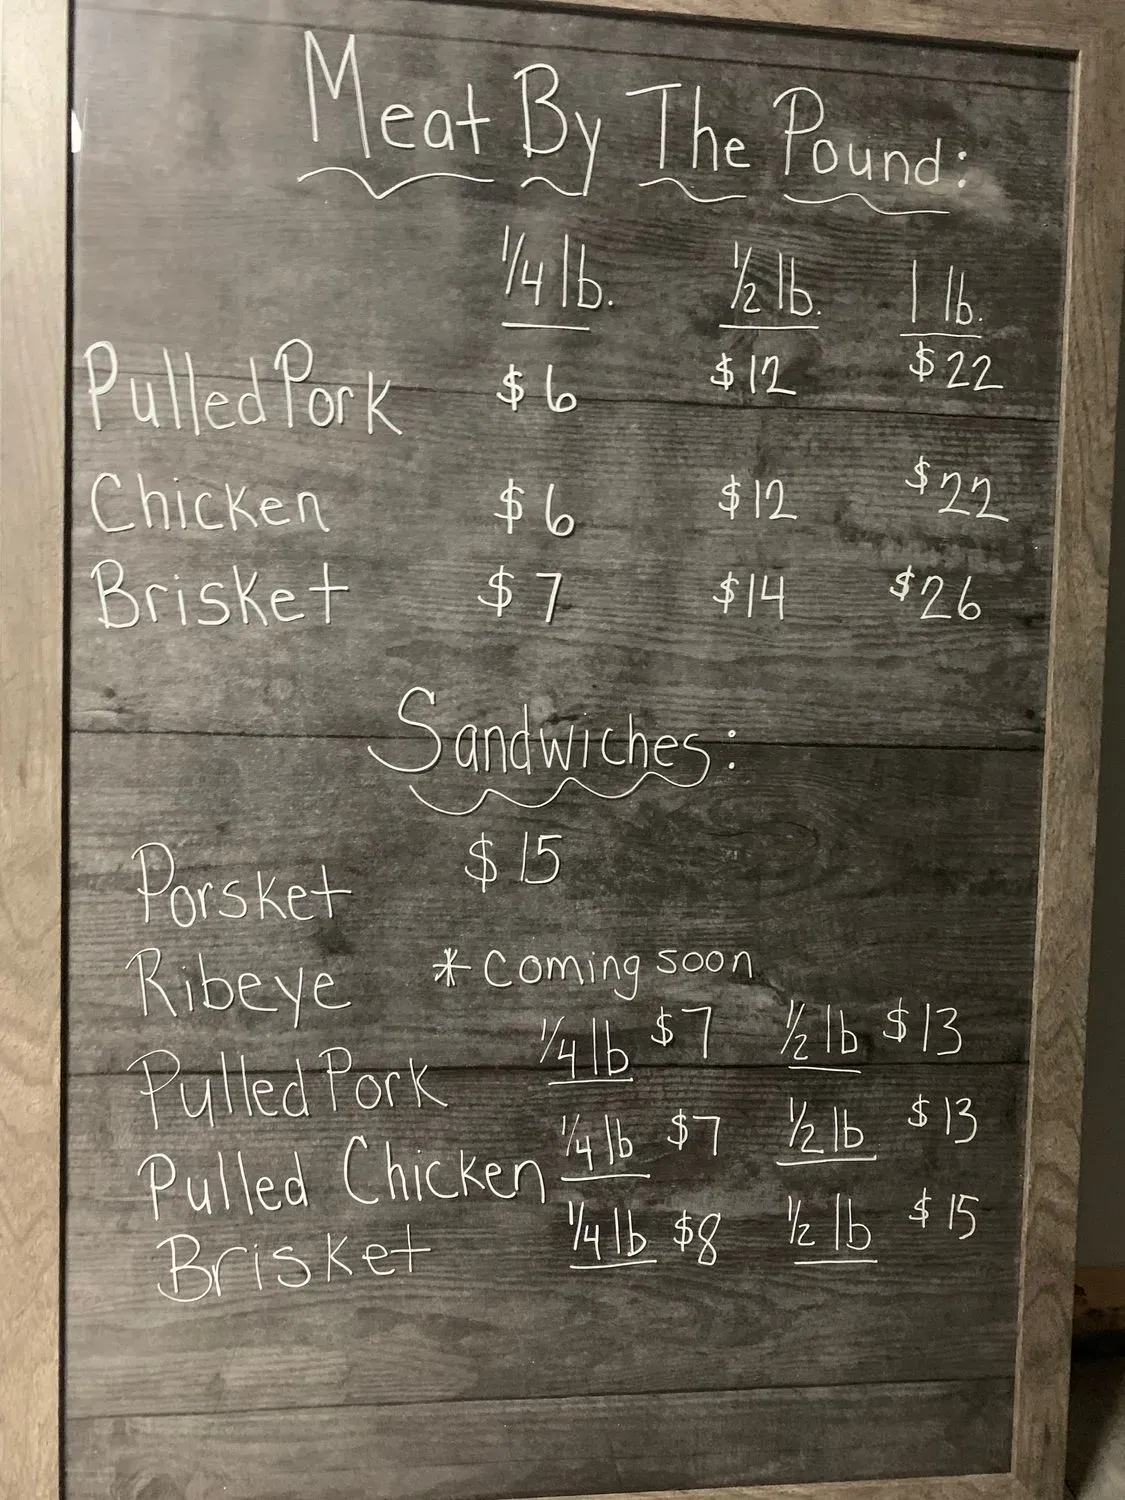 Meat By The Pound:
1/4 lb. 1/2 lb. 1 lb.
Pulled Pork $6 $12 $22
Chicken $6 $12 $22
Brisket $7 $14 $26
Sandwiches:
Porsket $15
Ribeye *coming soon
Pulled Pork 1/4 lb $7 1/2 lb $13
Pulled Chicken 1/4 lb $7 1/2 lb $13
Brisket 1/4 lb $8 1/2 lb $15